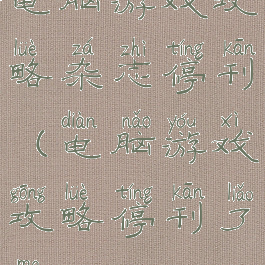 电脑游戏攻
lüè zá zhì tíng kān
略杂志停刊
diàn nǎo yóu xì
(电脑游戏
gōng lüè tíng kān liǎo
攻略停刊了
ma